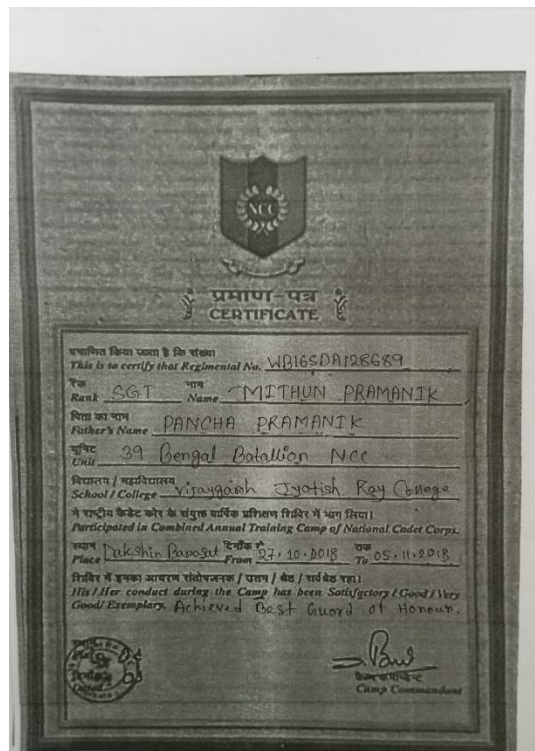 NCC
प्रमाण-पत्र
CERTIFICATE
प्रमाणित किया जाता है कि संख्या
This is to certify that Regimental No. WB16SDA128689
रैंक नाम
Rank SGT Name MITHUN PRAMANIK
पिता का नाम
Father's Name PANCHA PRAMANIK
यूनिट
Unit 39 Bengal Batallion NCC
विद्यालय / महाविद्यालय
School / College Vijaygarh Jyotish Ray College
ने राष्ट्रीय कैडेट कोर के संयुक्त वार्षिक प्रशिक्षण शिविर में भाग लिया।
Participated in Combined Annual Training Camp of National Cadet Corps.
स्थान दिनाँक से तक
Place Dakshin Barasat From 27.10.2018 To 05.11.2018
शिविर में इनका आचरण संतोषजनक / उत्तम / श्रेष्ठ / सर्वश्रेष्ठ रहा।
His / Her conduct during the Camp has been Satisfactory / Good / Very
Good/ Exemplary. Achieved Best Guard of Honour.
दिनाँक
Dated
कैम्प कमांडेन्ट
Camp Commandant